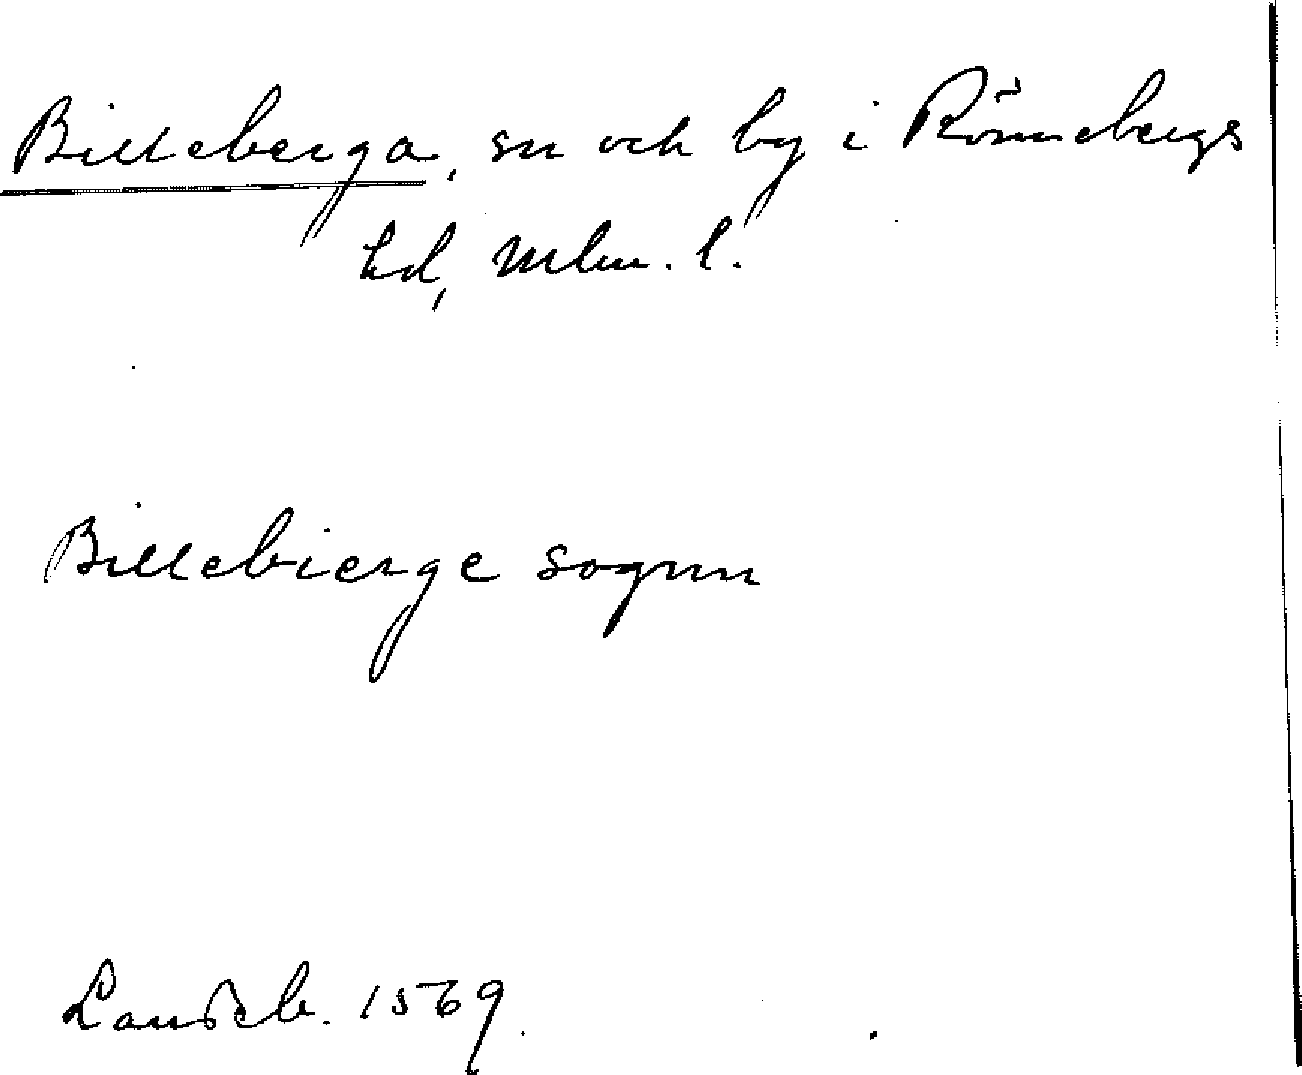 Billeberga, sn och by i Rönnebergs
hd, Mlm. l.
Billebierge sognn
Landeb. 1569.